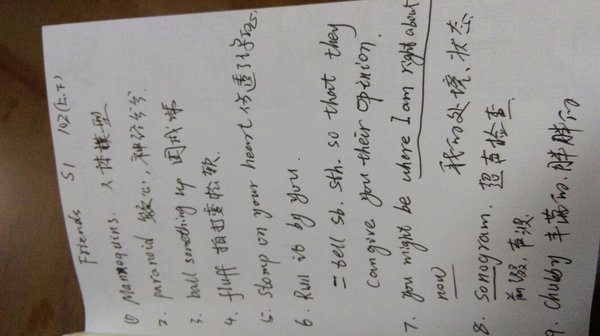 Friends S1 102(E.2)
① Mannequins. 人体模型
2. paranoid 疑心,神经兮兮
3. ball something up 团成球
4. fluff 拍打变松软
5. Stomp on your heart 伤透了你心
6. Run it by you.
= tell sb. sth. so that they
can give you their opinion.
7. you might be where I am right about
now 我的处境、状态
8. Sonogram. 超声检查
前缀,声波
9. Chubby 丰满的,胖胖的